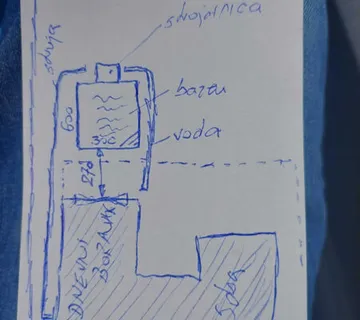 strojarnica
struja
bazen
600
300
voda
270
DNEVNI
BORAVAK